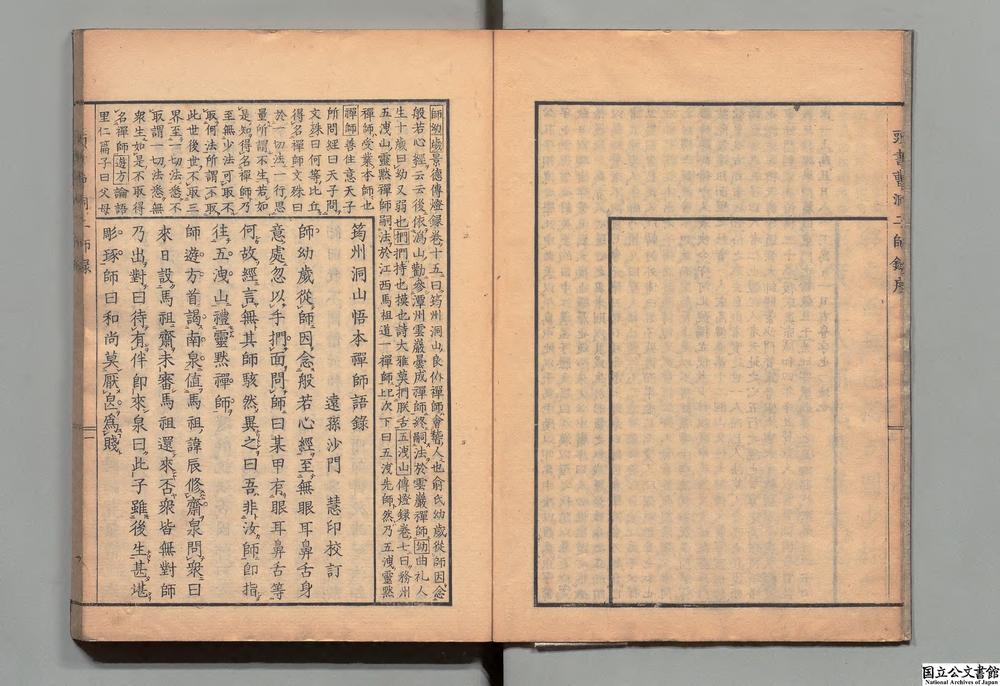 頭書曹洞二師錄序
師幼歲景德傳燈錄卷十五曰筠州洞山良价禪師會稽人也俞氏幼歲從師因念
般若心經云云後依潙山勸參潭州雲巖曇成禪師終嗣法於雲巖禪師幼曲礼人
生十歲曰幼又弱也捫捫持也摸也詩大雅莫捫朕舌五洩山傳燈録卷七曰務州
五洩山靈黙禪師嗣法於江西馬祖道一禪師比次下曰五洩先師然乃五洩靈黙
禪師受業本師也
禪師善住意天子
所問經曰天子問
文殊曰何等比丘
得名禪師文殊曰
於一切法一行思
量所謂不生若如
是知得名禪師乃
至無少法可取不
取何法所謂不取
此世後世不取三
界至一切法悉不
取謂一切法悉無
衆生如是不取得
名禪師遊方論語
里仁篇子曰父母
筠州洞山悟本禪師語錄
遠孫沙門 慧印校訂
師幼歲從師因念般若心經至無眼耳鼻舌身
意處忽以手捫面問師曰某甲有眼耳鼻舌等
何故經言無其師駭然異之曰吾非汝師卽指
往五洩山禮靈黙禪師
師遊方首謁南泉値馬祖諱辰修齋泉問衆曰
來日設馬祖齋未審馬祖還來否衆皆無對師
乃出對曰待有伴卽來泉曰此子雖後生甚堪
彫琢師曰和尚莫厭良爲賤
国立公文書館
National Archives of Japan